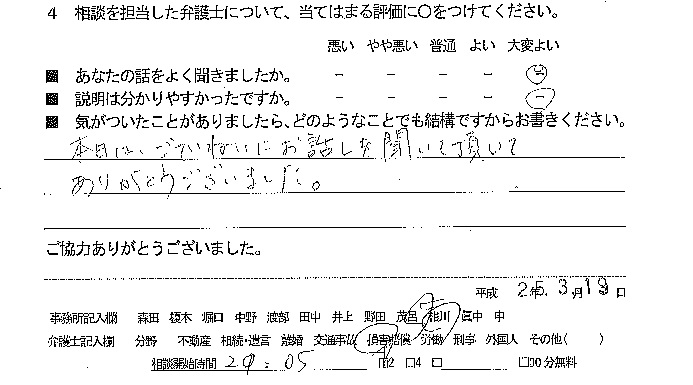 4 相談を担当した弁護士について、当てはまる評価に○をつけてください。
悪い やや悪い 普通 よい 大変よい
■ あなたの話をよく聞きましたか。 － － － － －
■ 説明は分かりやすかったですか。 － － － － －
■ 気がついたことがありましたら、どのようなことでも結構ですからお書きください。
本日は、ごていねいにお話しを聞いて頂いて
ありがとうございました。
ご協力ありがとうございました。
平成 25年 3月 19日
事務所記入欄 森田 榎木 堀口 中野 渡部 田中 井上 野田 茂呂 相川 眞中 申
弁護士記入欄 分野 不動産 相続・遺言 離婚 交通事故 損害賠償 労働 刑事 外国人 その他（ ）
相談開始時間 20：05 □2 □4 □ □90分無料